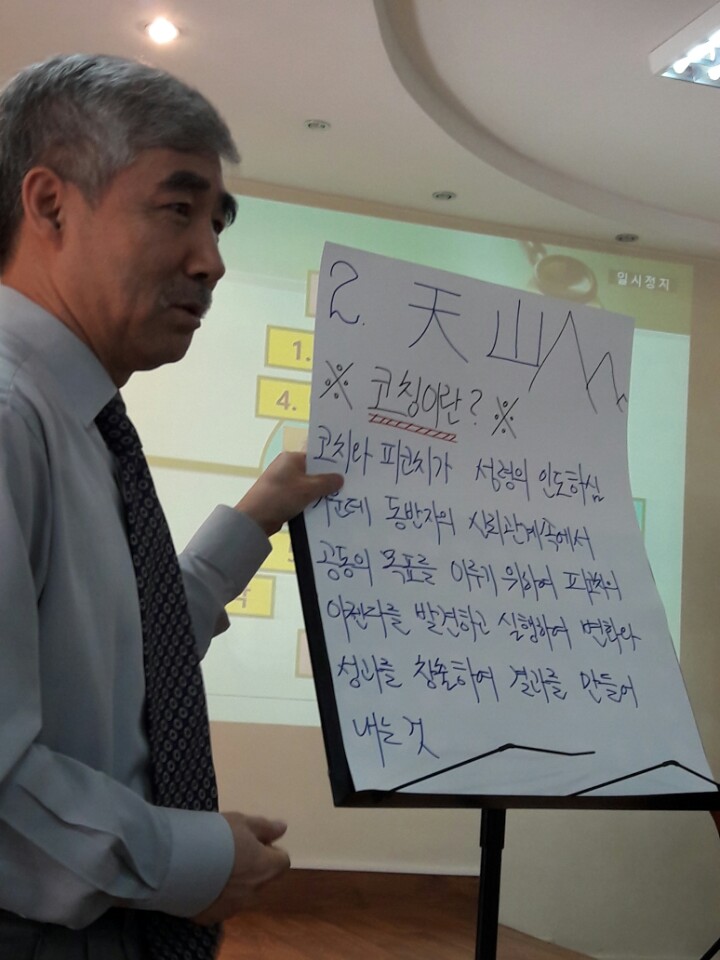 일시정지
1.
4.
2. 天山
※ 코칭이란? ※
코치와 피코치가 성령의 인도하심
가운데 동반자의 신뢰관계속에서
공동의 목표를 이루기 위하여 피코치의
아젠다를 발견하고 실행하여 변화와
성과를 창출하여 결과를 만들어
내는 것